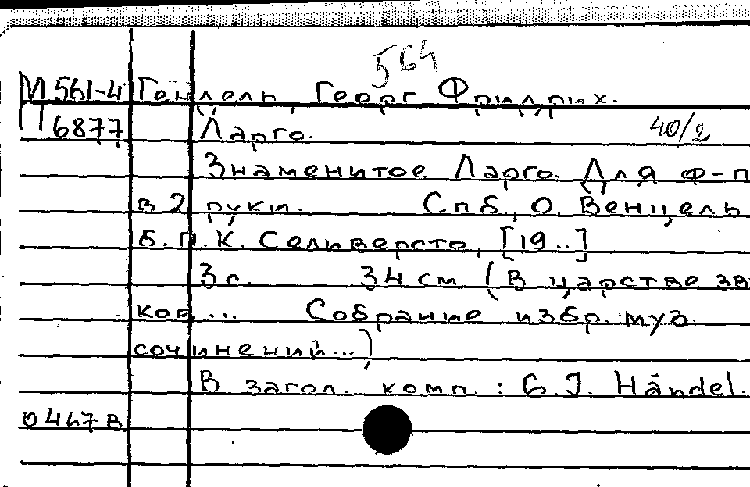 564
М 561-4 Гендель, Георг Фридрих.
П 6877 Ларго. 40/2
Знаменитое Ларго. Для ф-п
в 2 руки. Спб., О. Венцель
б. П. К. Селиверсто, [19..]
3 с. 34 см (В царстве зв
ков... Собрание избр. муз.
сочинений...)
В загол. комп.: G. J. Händel.